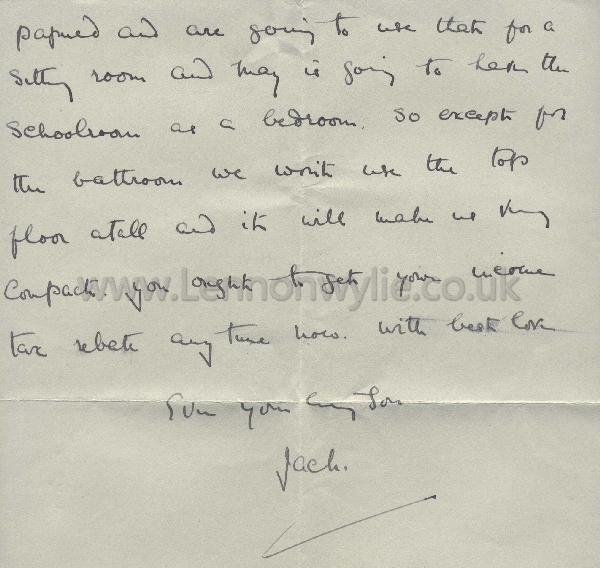 papered and are going to use that for a
sitting room and May is going to have the
schoolroom as a bedroom. So except for
the bathroom we won't use the top
floor atall and it will make us very
compact. you ought to get your income
tax rebate any time now. With best love
Ever your loving Son
Jack.
www.Lennonwylie.co.uk